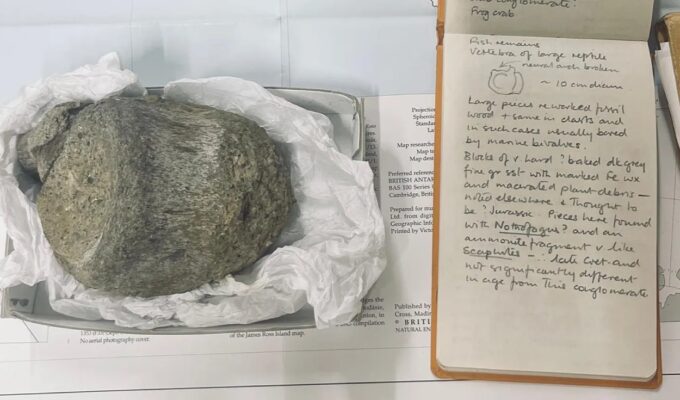 conglomerate.
Frog crab
Fish remains
Vertebra of large reptile
neural arch broken
~ 10 cm diam
Large pieces reworked fossil
wood + same in clasts and
in such cases usually bored
by marine bivalves.
Blocks of v hard ? baked dk grey
fine gr sst with marked Fe wx
and macerated plant debris —
noted elsewhere & thought to
be ? Jurassic. Pieces here found
with Nothofagus? and an
ammonite fragment v like
Scaphites — ∴ late Cret and
not significantly different
in age from this conglomerate
Projection
Standard
Map
Map
Preferred reference
BRITISH ANTAR
BAS 100 Series
Cambridge, British
Prepared for
Ltd. from digit
Geographic Info
Printed by Victo
Published by
Cross, Madin
BRIT
NATURAL EN
compilation
of the James Ross Island map.
No aerial photography cover.